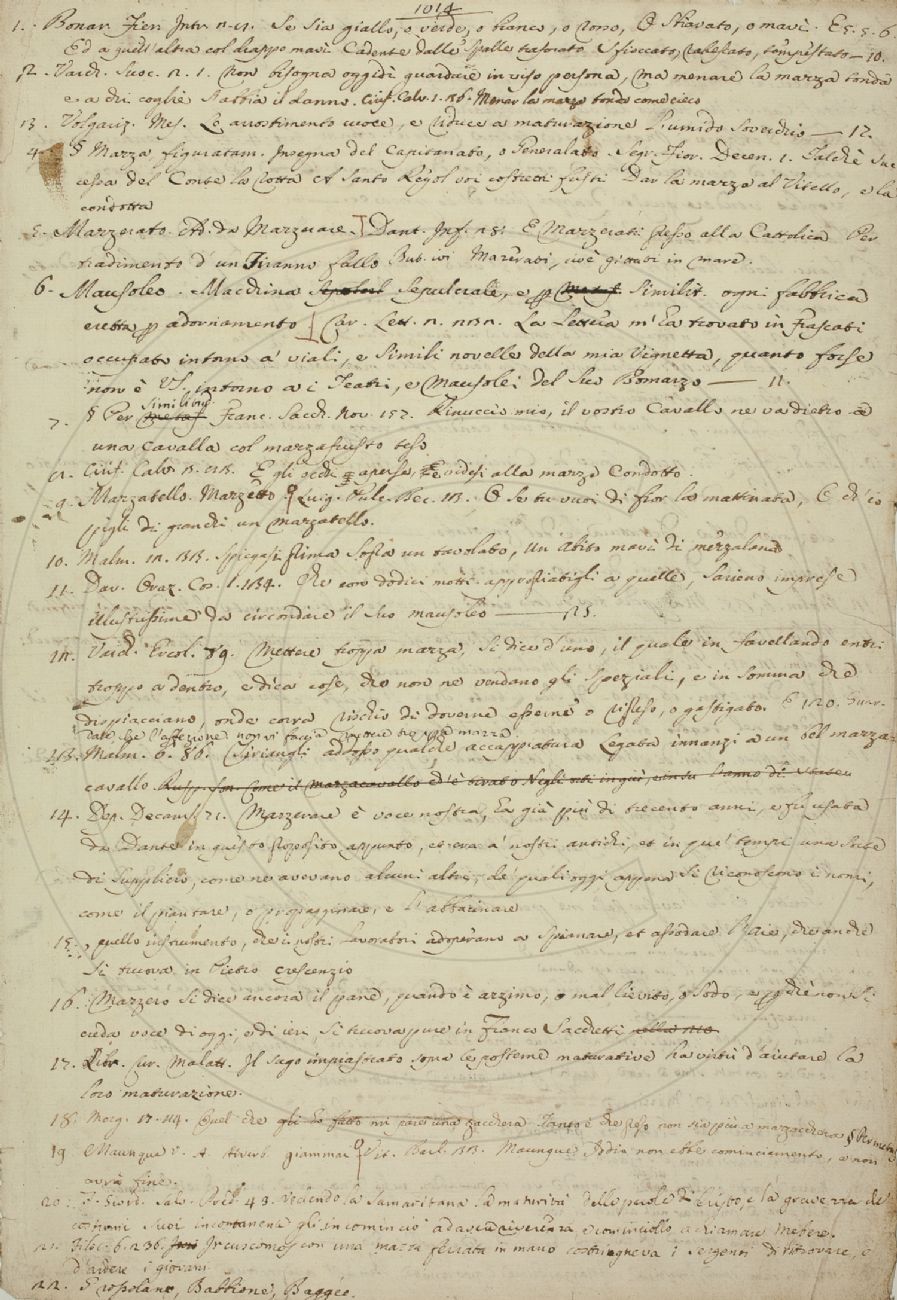 1014
1. Bonar. Fier. Intr. 2. Se sia giallo, o verde, o bianco, o rosso, O sbiavato, o mavì. E 5. 5. 6.
Ed a quell'altra col drappo mavì Cadente dalle spalle trasoriato Sfioccato, tempestato — 10.
2. Varch. Suoc. 2. 1. Non bisogna oggidì guardare in viso persona, ma menare la mazza tonda
e a chi coglie s'abbia il danno. Ciriff. Calv. 1. 16. Menar la mazza tonda come cieco
13. Volgariz. Mes. Lo arrostimento cuoce, e riduce a maturazione l'umido soverchio — 12.
4. § Mazza figuratam. Insegna del Capitanato, o Generalato. Segr. Fior. Decen. 1. Talchè suc
cessa del Conte la rotta A Santo Regol voi costretti fusti Dar la mazza al Vitello, e la
condotta
5. Mazzerato. Add. da Mazzerare. Dant. Inf. 28. E Mazzerati presso alla Cattolica Per
tradimento d'un Tiranno fello But. ivi Mazerati, cioè gittati in mare.
6. Mausoleo. Macchina Sepulcrale, e p simili. ogni fabbrica
eretta p adornamento Car. Lett. 2. La lettera m'ha trovato in Frascati
occupato intorno a' viali, e simili novelle della mia vignetta, quanto forse
non è V.S. intorno a i Teatri, e Mausolei del Suo Bomarzo — 11.
7. § Per similit. Franc. Sacch. Nov. 157. Rinuccio mio, il vostro Cavallo ne va dietro a
una cavalla col mazzafrusto teso
Ciriff. Calv. E gli occhi aperse, e videsi alla mazza Condotto.
9. Mazzatello. Mazzetto Luig. Pulc. Bec. 13. O se tu vuoi di fior la mattinata, O ch'io
pigli di giunchi un mazzatello.
10. Malm. Spiegasi prima sopra un tavolato, Un abito mavì di mezzalana
11. Dav. Oraz. Cos. 1. 134. Che con dodici motti appropriatigli a quelle, sarieno imprese
illustrissime da circondare il suo mausoleo — 15.
12. Varch. Ercol. 89. Mettere troppa mazza, si dice d'uno, il quale in favellando entri
troppo a dentro, e dica cose, che non ne vendano gli speziali, e in somma che
dispiacciano, onde corra rischio di doverne essere o ripreso, o gastigato. E 120. Guar
date che l'affezione non vi faccia mettere troppa mazza.
13. Malm. 6. 86. adosso qualche accappiatura Legata innanzi a un bel mazza-
cavallo
14. Dep. Decam. 71. Mazzerare è voce nostra, ha già più di trecento anni, e fu usata
da Dante in questo proposito appunto, ed era a' nostri antichi, et in que' tempi una sorte
di supplicio, come ne avevano alcuni altri, de' quali oggi appena si riconoscono i nomi,
come il piantare, o propagginare, e l'abbacinare
15. quello instrumento, che i nostri lavoratori adoperano a spianare, et assodare l'Aie, che anche
si truova in Pietro Crescenzio
16. Mazzero si dice ancora il pane, quando è azzimo, o mal lievito, o sodo, e pchè non si
creda voce di oggi, e di ieri, si truova pure in Franco Sacchetti
17. Libr. Cur. Malatt. Il sugo impiastrato sopra le posteme maturative ha virtù d'aiutare la
loro maturazione.
18. Morg. 17. 114. Quel che gli ho fatto mi pare una zacchera Tanto è che spesso non sia più a mazzacchera
19. Maunque. Avverb. giammai Vit. Barl. 13. Maunque Iddio non ebbe cominciamento, e non
avrà fine.
20. Giord. Salv. Pred. 43. Vedendo la Samaritana la maturità delle parole di Cristo, e la gravezza de'
costumi suoi incontanente gli incominciò ad avere riverenza, e cominciollo a chiamare Messere.
21. Filoc. 6. 236. Ircuscomos con una mazza ferrata in mano costringneva i sergenti di ritrovare, e
d'ardere i giovani
22. Crospolano, Babbione, Baggeo.